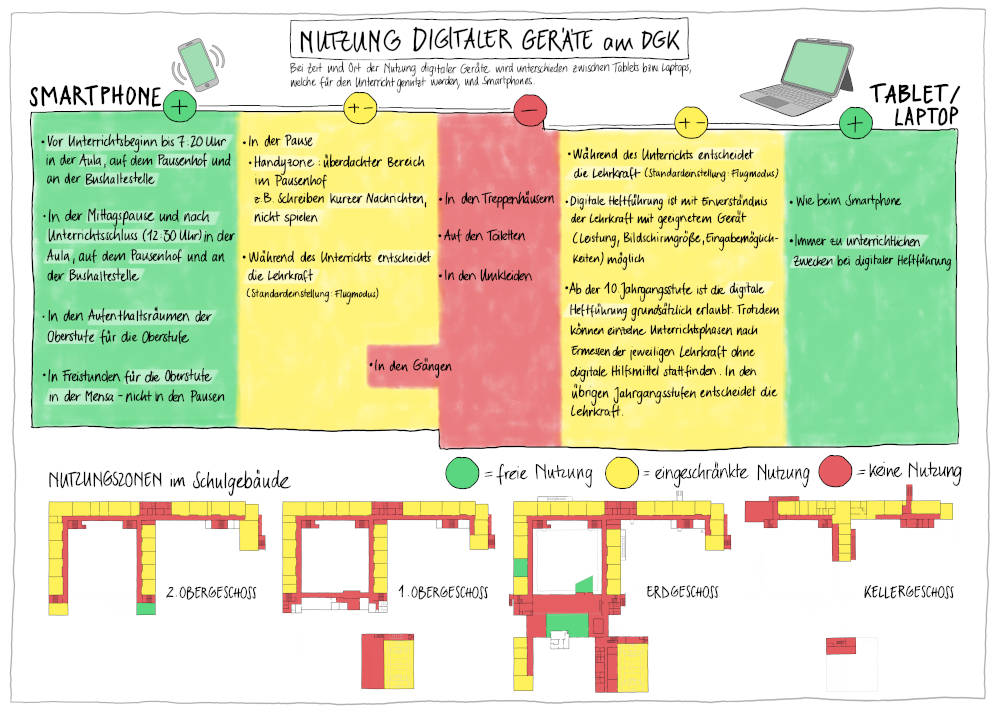 NUTZUNG DIGITALER GERÄTE am DGK
Bei Zeit und Ort der Nutzung digitaler Geräte wird unterschieden zwischen Tablets bzw. Laptops,
welche für den Unterricht genutzt werden, und Smartphones.
SMARTPHONE
+
• Vor Unterrichtsbeginn bis 7:20 Uhr
in der Aula, auf dem Pausenhof und
an der Bushaltestelle
• In der Mittagspause und nach
Unterrichtsschluss (12:30 Uhr) in der
Aula, auf dem Pausenhof und an
der Bushaltestelle
• In den Aufenthaltsräumen der
Oberstufe für die Oberstufe
• In Freistunden für die Oberstufe
in der Mensa - nicht in den Pausen
+-
• In der Pause
• Handyzone: überdachter Bereich
im Pausenhof
z.B. Schreiben kurzer Nachrichten,
nicht spielen
• Während des Unterrichts entscheidet
die Lehrkraft
(Standardeinstellung: Flugmodus)
-
• In den Treppenhäusern
• Auf den Toiletten
• In den Umkleiden
• In den Gängen
TABLET/
LAPTOP
+-
• Während des Unterrichts entscheidet
die Lehrkraft (Standardeinstellung: Flugmodus)
• Digitale Heftführung ist mit Einverständnis
der Lehrkraft mit geeignetem Gerät
(Leistung, Bildschirmgröße, Eingabemöglich-
keiten) möglich
• Ab der 10. Jahrgangsstufe ist die digitale
Heftführung grundsätzlich erlaubt. Trotzdem
können einzelne Unterrichtsphasen nach
Ermessen der jeweiligen Lehrkraft ohne
digitale Hilfsmittel stattfinden. In den
übrigen Jahrgangsstufen entscheidet die
Lehrkraft.
+
• Wie beim Smartphone
• Immer zu unterrichtlichen
Zwecken bei digitaler Heftführung
NUTZUNGSZONEN im Schulgebäude
= freie Nutzung
= eingeschränkte Nutzung
= keine Nutzung
2. OBERGESCHOSS
1. OBERGESCHOSS
ERDGESCHOSS
KELLERGESCHOSS